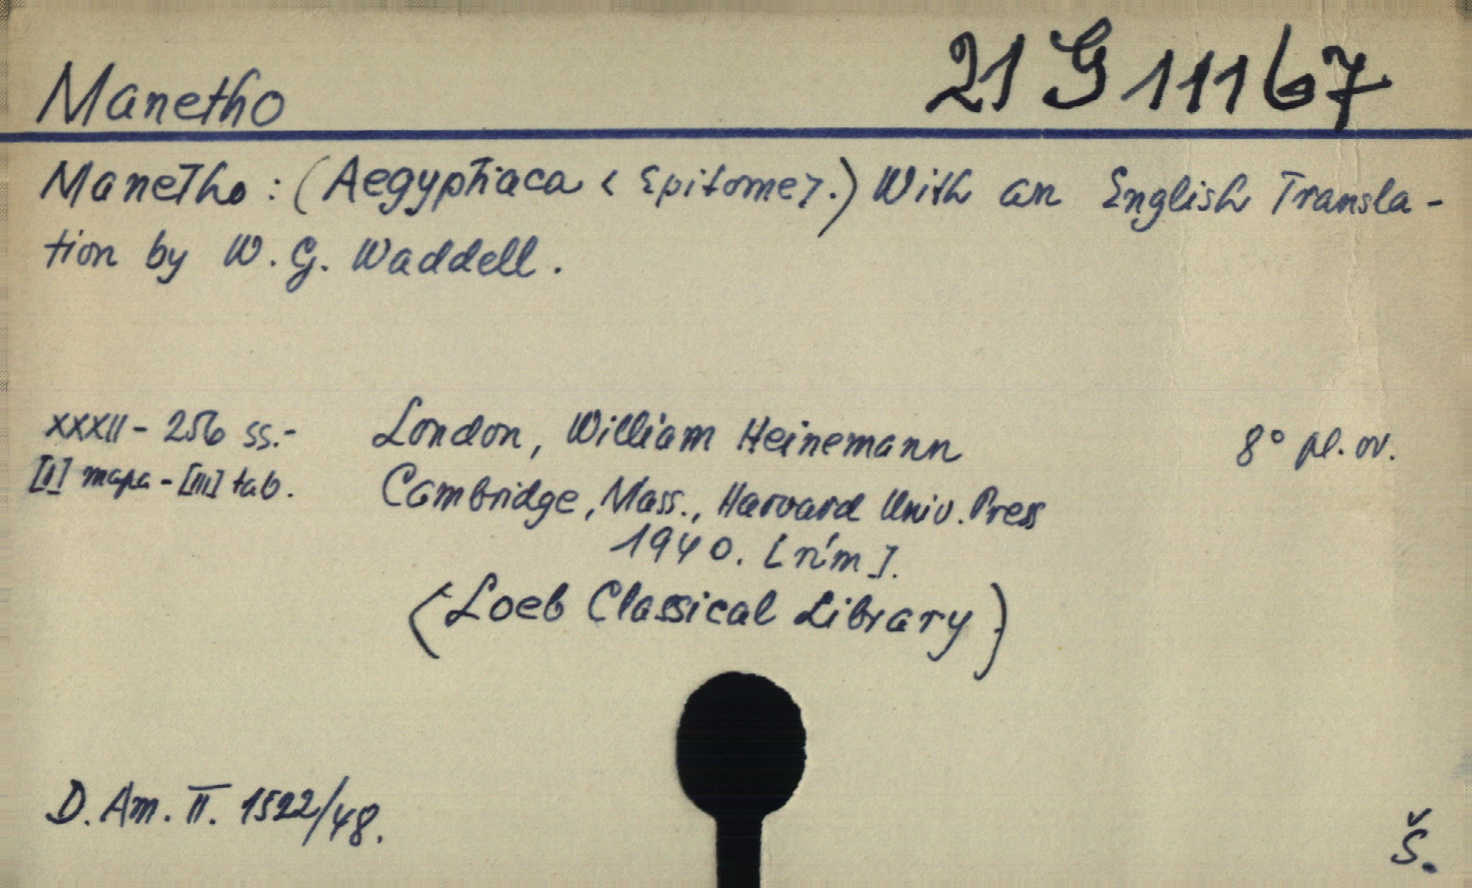 Manetho
21 G 11167
Manetho : (Aegyptiaca < Epitome>.) With an English Transla-
tion by W. G. Waddell.
XXXII - 256 ss.-
[I] mapa - [III] tab.
London, William Heinemann
8° pl. ov.
Cambridge, Mass., Harvard Univ. Press
1940. [rím].
(Loeb Classical Library.)
D. Am. II. 1522/48.
Š.